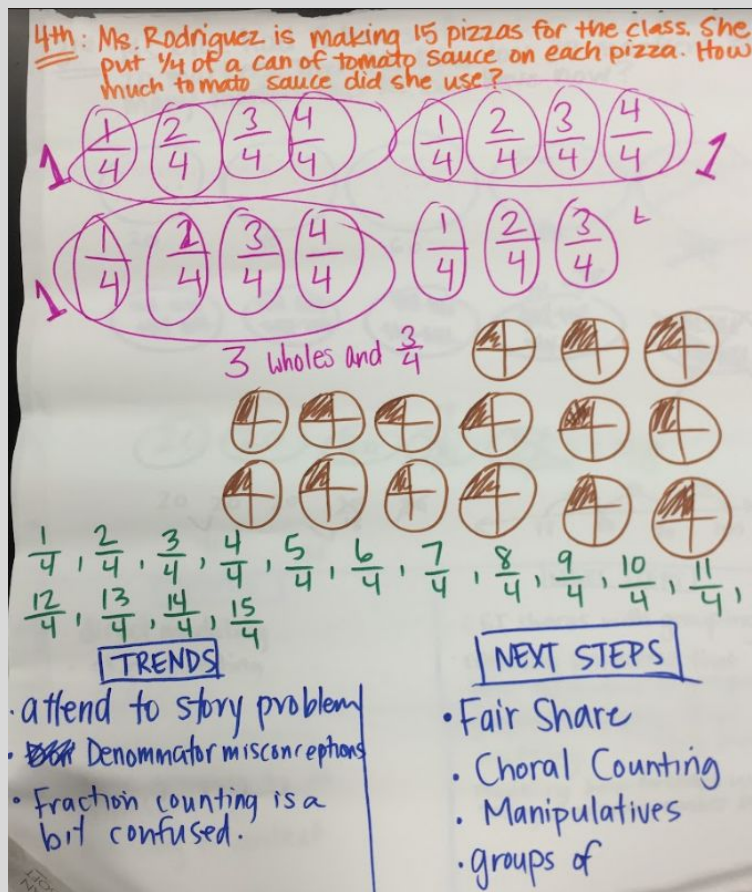 4th: Ms. Rodriguez is making 15 pizzas for the class. She
put 1/4 of a can of tomato sauce on each pizza. How
much tomato sauce did she use?
1 1/4 2/4 3/4 4/4 1/4 2/4 3/4 4/4 1
1 1/4 2/4 3/4 4/4 1/4 2/4 3/4
3 wholes and 3/4
1/4, 2/4, 3/4, 4/4, 5/4, 6/4, 7/4, 8/4, 9/4, 10/4, 11/4,
12/4, 13/4, 14/4, 15/4
TRENDS
· attend to story problem
· Denominator misconceptions
· Fraction counting is a
bit confused.
NEXT STEPS
· Fair Share
· Choral Counting
· Manipulatives
· groups of